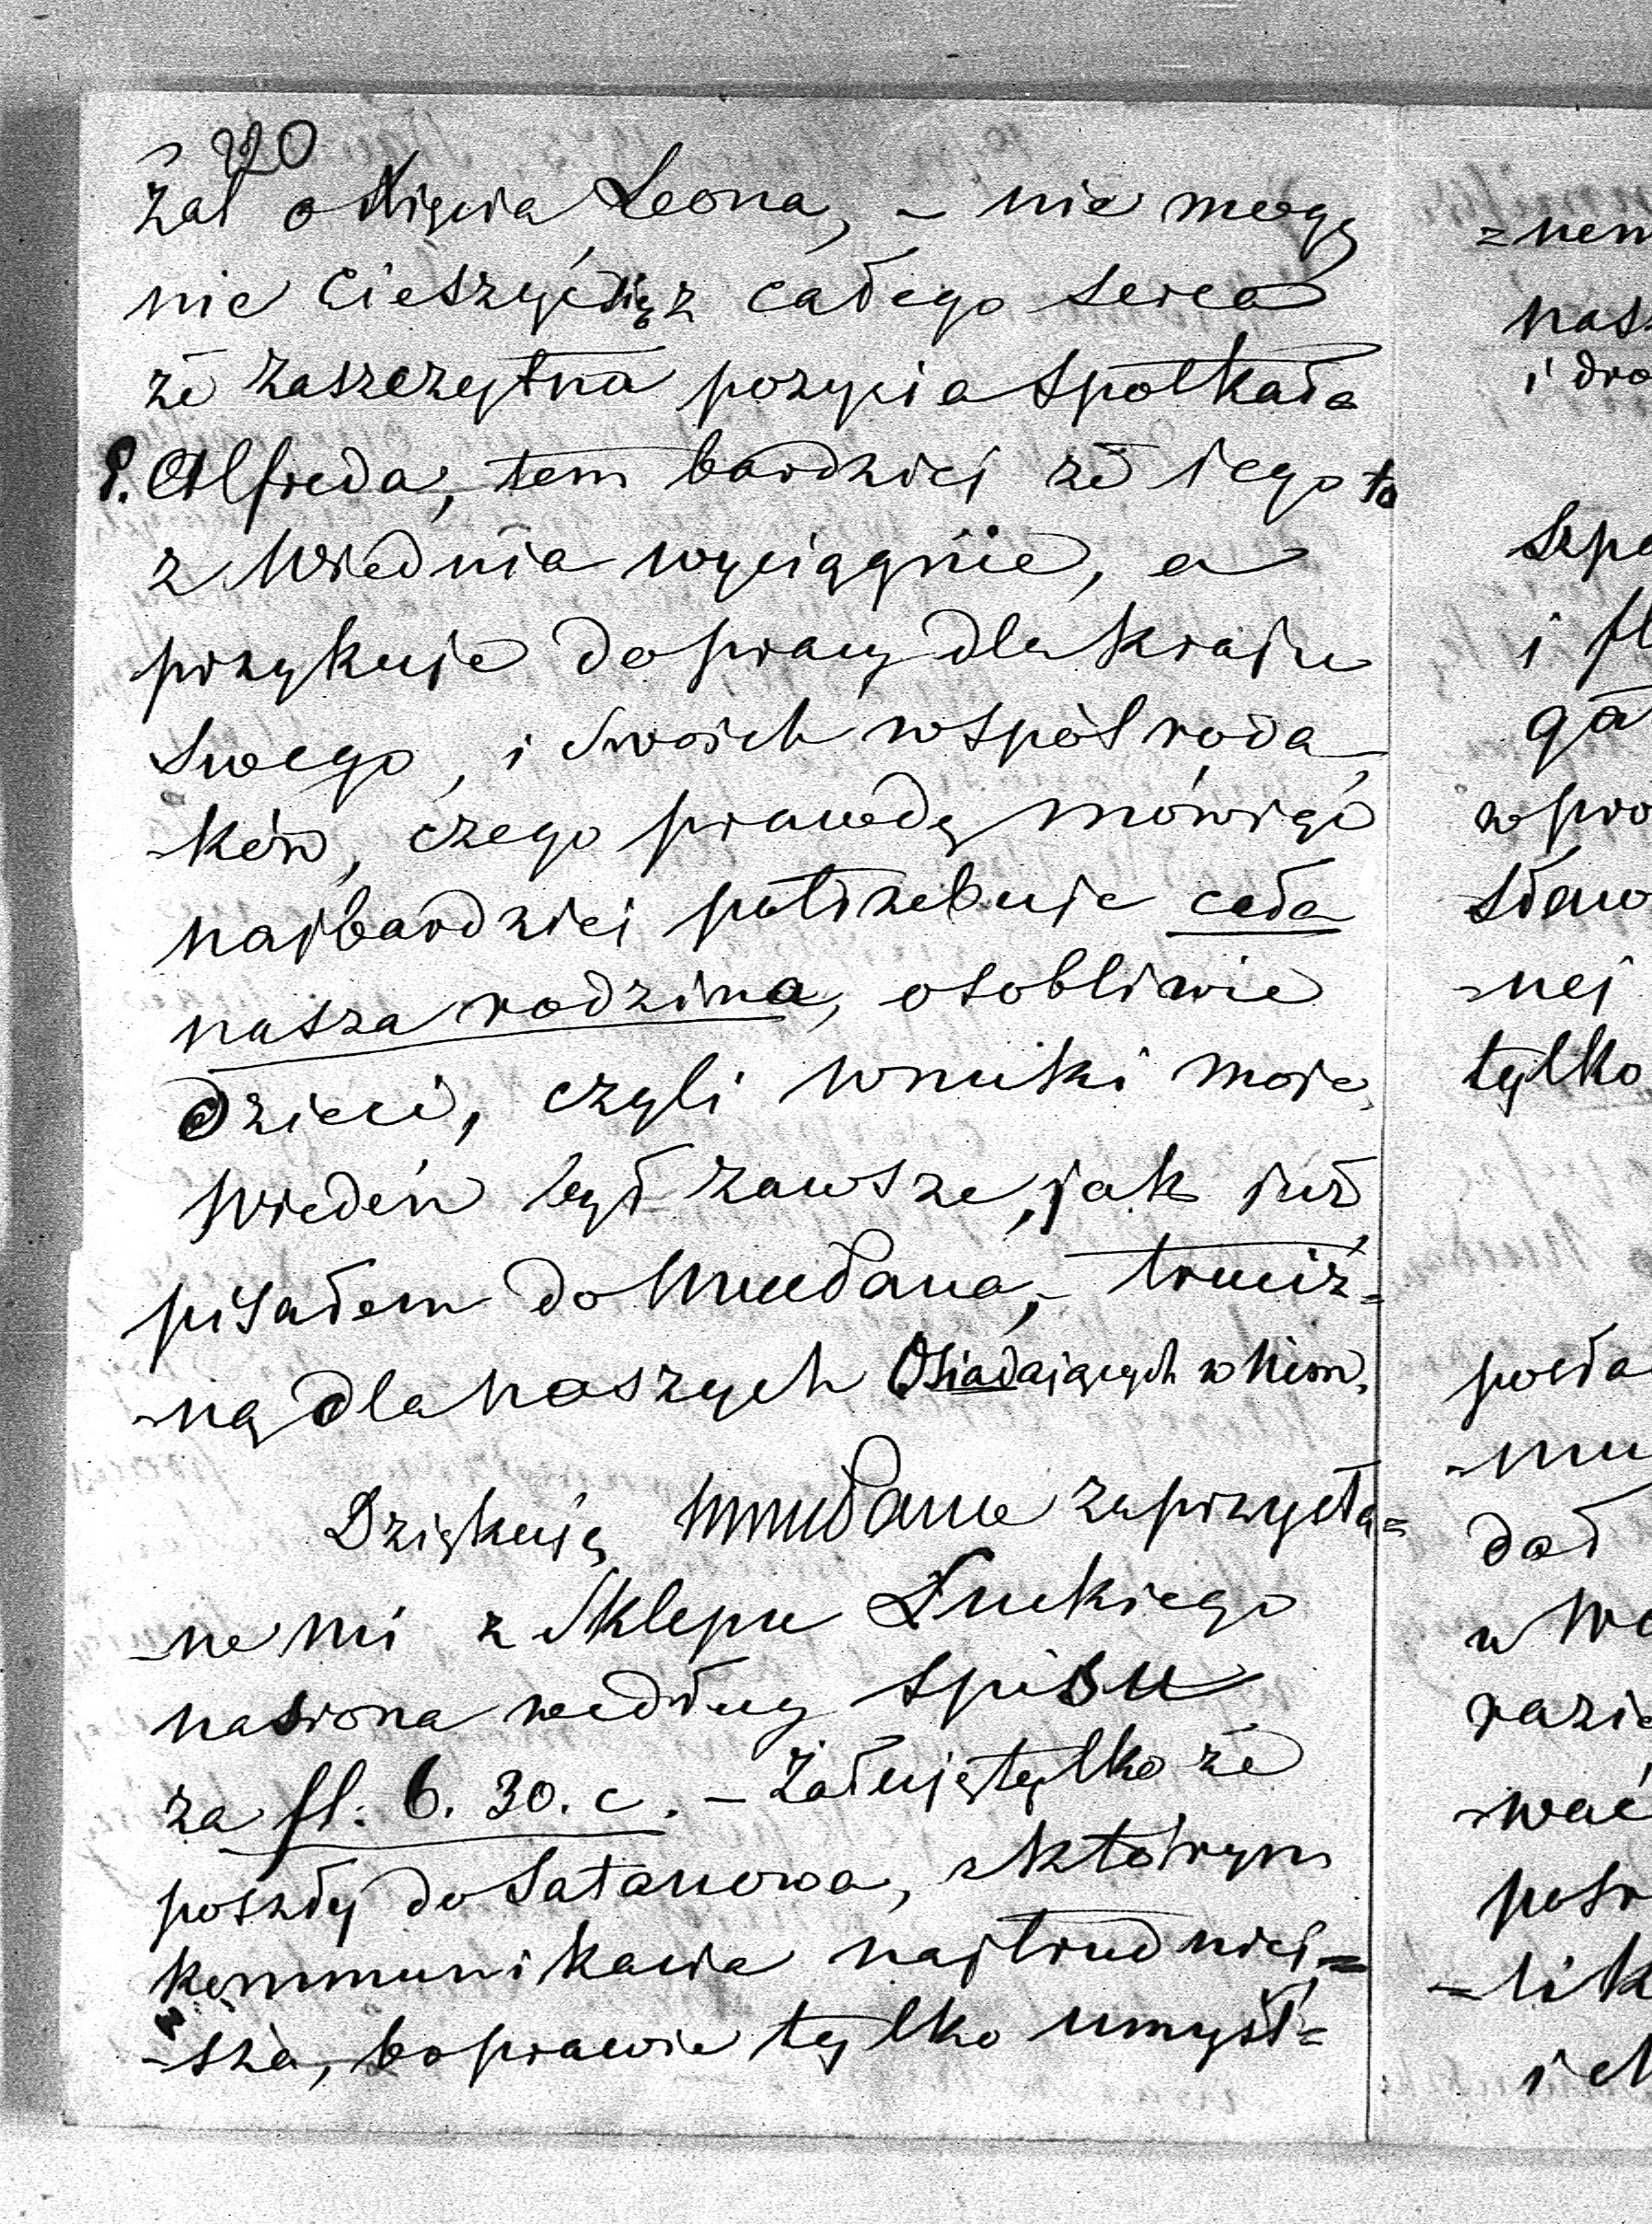 220
żal o Xięcia Leona, – nie mogę
nie cieszyć się z całego serca
że zaszczytna pozycia spotkała
P. Alfreda, tem bardziej że iego to
z Wiednia wyciągnie, a
przykuje do pracy dla kraju
swego, i swoich współroda-
-ków, czego prawdę mówiąc
najbardziej potrzebuje cała
nasza rodzina, osobliwie
dzieci, czyli wnuki moje.
Wiedeń był zawsze, jak już
pisałem do Mułana, – truciz=
-ną dla naszych Osiadających w Nim.
Dziękuję Mułanu za przysła=
-ne mi z Sklepu Łuckiego
nasiona według spisu
za fl: 6. 30. c. – Żałuję tylko że
poszły do Satanowa, z którym
kommunikacia najtrudniej=
-sza, bo prawie tylko umyśl=
=nem
nas
i dro
Szpa
i fl
ga
w pro
sław
-nej
tylko
-mu
dał
w Wo
razie
-wać
posr
=lik
i ch